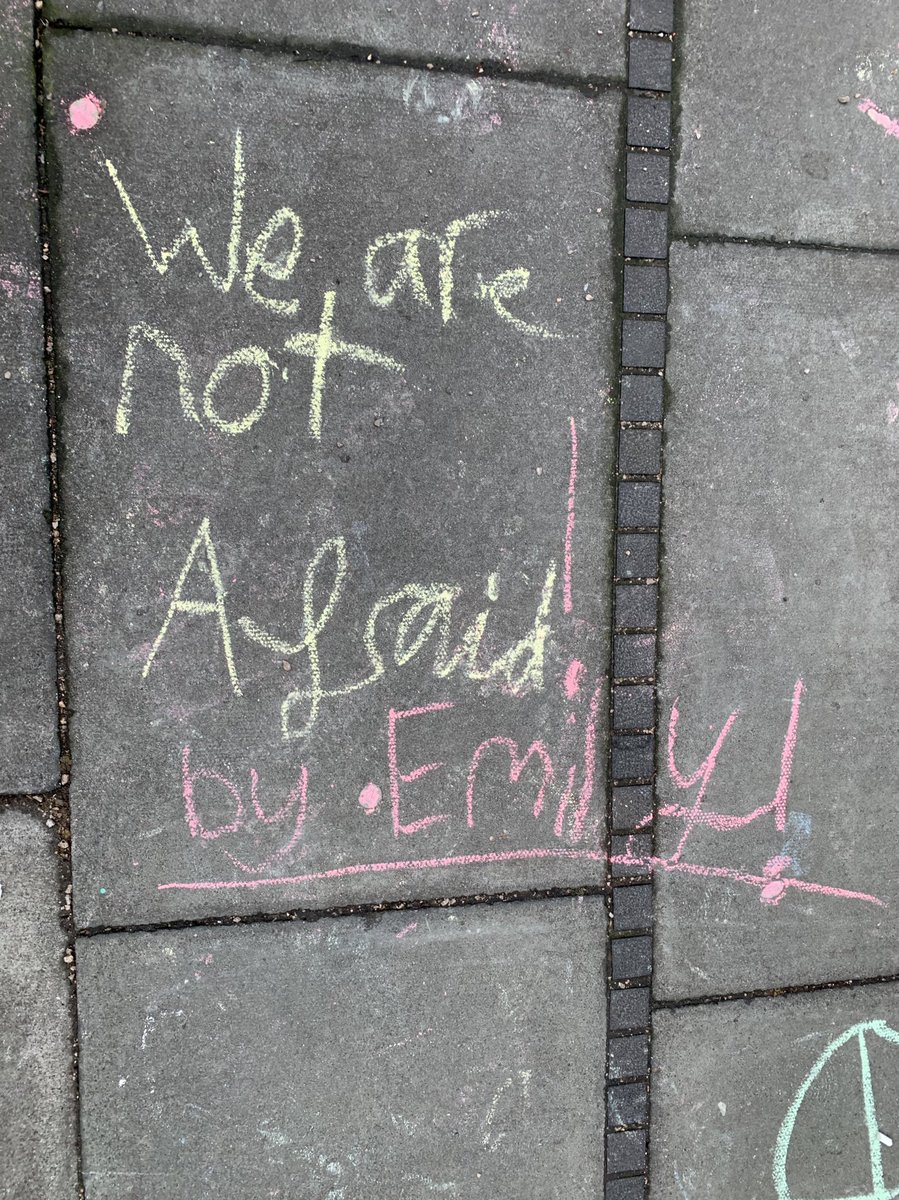 We are
not
Afraid!
by Emily!